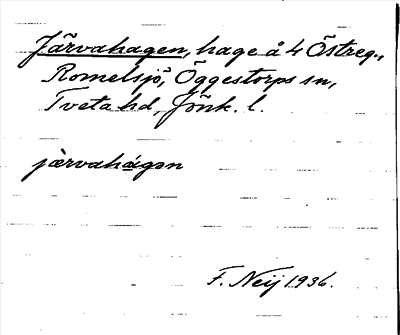 Järvahagen, hage å 4 Östreg.,
Romelsjö, Öggestorps sn,
Tveta hd, Jönk. l.
jä̀rvahágən
F. Neij 1936.